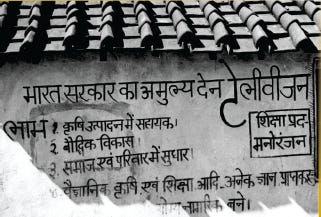 भारत सरकार का अमुल्य देन टेलीवीजन
लाभ १. कृषि उत्पादन में सहायक।
२ बौद्धिक विकास।
३. समाज एवं परिवार में सुधार।
४. वैज्ञानिक कृषि एवं शिक्षा आदि अनेक ज्ञान प्राप्त कर
नागरिक बने।
शिक्षा प्रद
मनोरंजन